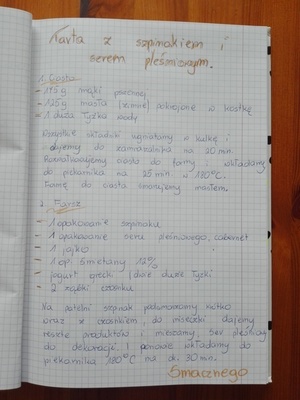 Tarta z szpinakiem i
serem pleśniowym.
1. Ciasto
- 175 g mąki pszennej
- 125 g masła (zimne) pokrojone w kostkę
- 1 duża łyżka wody
Wszystkie składniki zgniatamy w kulkę i
dajemy do zamrażalnika na 20 min.
Rozwałkowujemy ciasto do formy i wkładamy
do piekarnika na 25 min. 180°C.
Formę do ciasta smarujemy masłem.
2. Farsz
- 1 opakowanie szpinaku
- 1 opakowanie sera pleśniowego,
- 1 jajko
- 1 op. śmietany 12%
- jogurt grecki (dwie duże łyżki
- 2 ząbki czosnku
Na patelni szpinak podsmażamy krótko
wraz z czosnkiem, do miseczki dajemy
resztę produktów i mieszamy. Ser pleśniowy
do dekoracji. I ponownie wkładamy do
piekarnika 180°C na ok. 30 min.
Smacznego